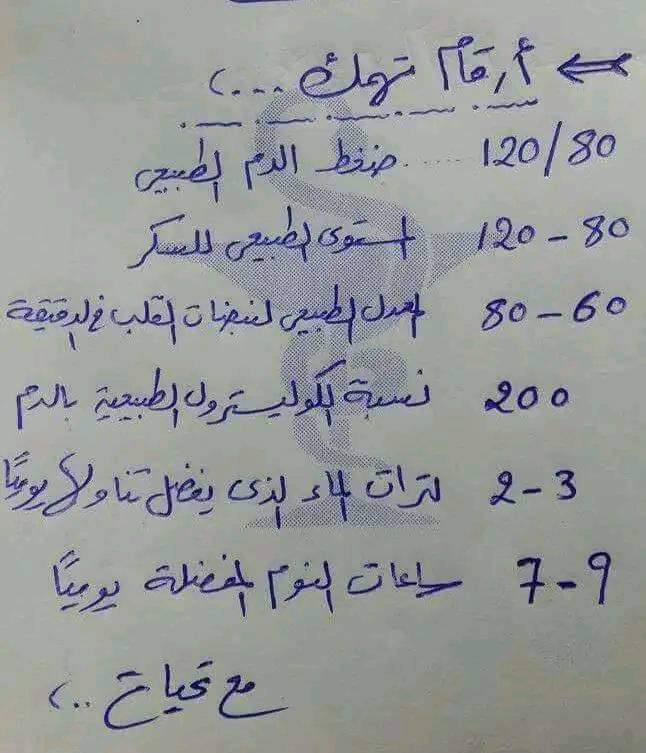 أرقام تهمك ...
120/80 ..... ضغط الدم الطبيعي
120 - 80 المستوى الطبيعي للسكر
80 - 60 المعدل الطبيعي لنبضات القلب في الدقيقة
200 نسبة الكوليسترول الطبيعية بالدم
2 - 3 لترات الماء الذى يفضل تناولها يوميًا
7 - 9 ساعات النوم المفضلة يوميًا
مع تحياتي ..